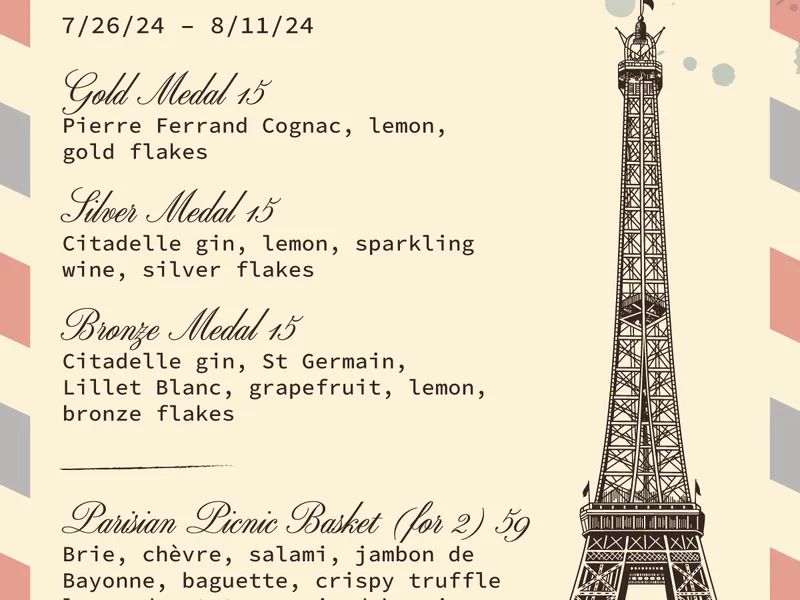 7/26/24 – 8/11/24
Gold Medal 15
Pierre Ferrand Cognac, lemon,
gold flakes
Silver Medal 15
Citadelle gin, lemon, sparkling
wine, silver flakes
Bronze Medal 15
Citadelle gin, St Germain,
Lillet Blanc, grapefruit, lemon,
bronze flakes
Parisian Picnic Basket (for 2) 59
Brie, chèvre, salami, jambon de
Bayonne, baguette, crispy truffle